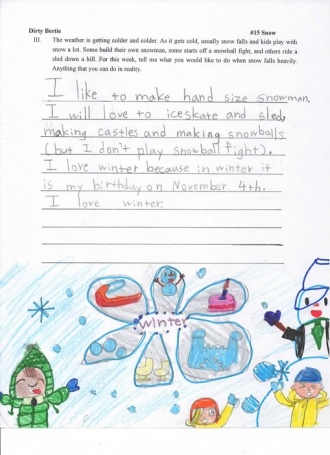 Dirty Bertie
#15 Snow
III. The weather is getting colder and colder. As it gets cold, usually snow falls and kids play with
snow a lot. Some build their own snowman, some starts off a snowball fight, and others ride a
sled down a hill. For this week, tell me what you would like to do when snow falls heavily.
Anything that you can do in reality.
I like to make hand size snowman.
I will love to iceskate and sled,
making castles and making snowballs
(but I don't play snowball fight).
I love winter because in winter it
is my birthday on November 4th.
I love winter.
winter